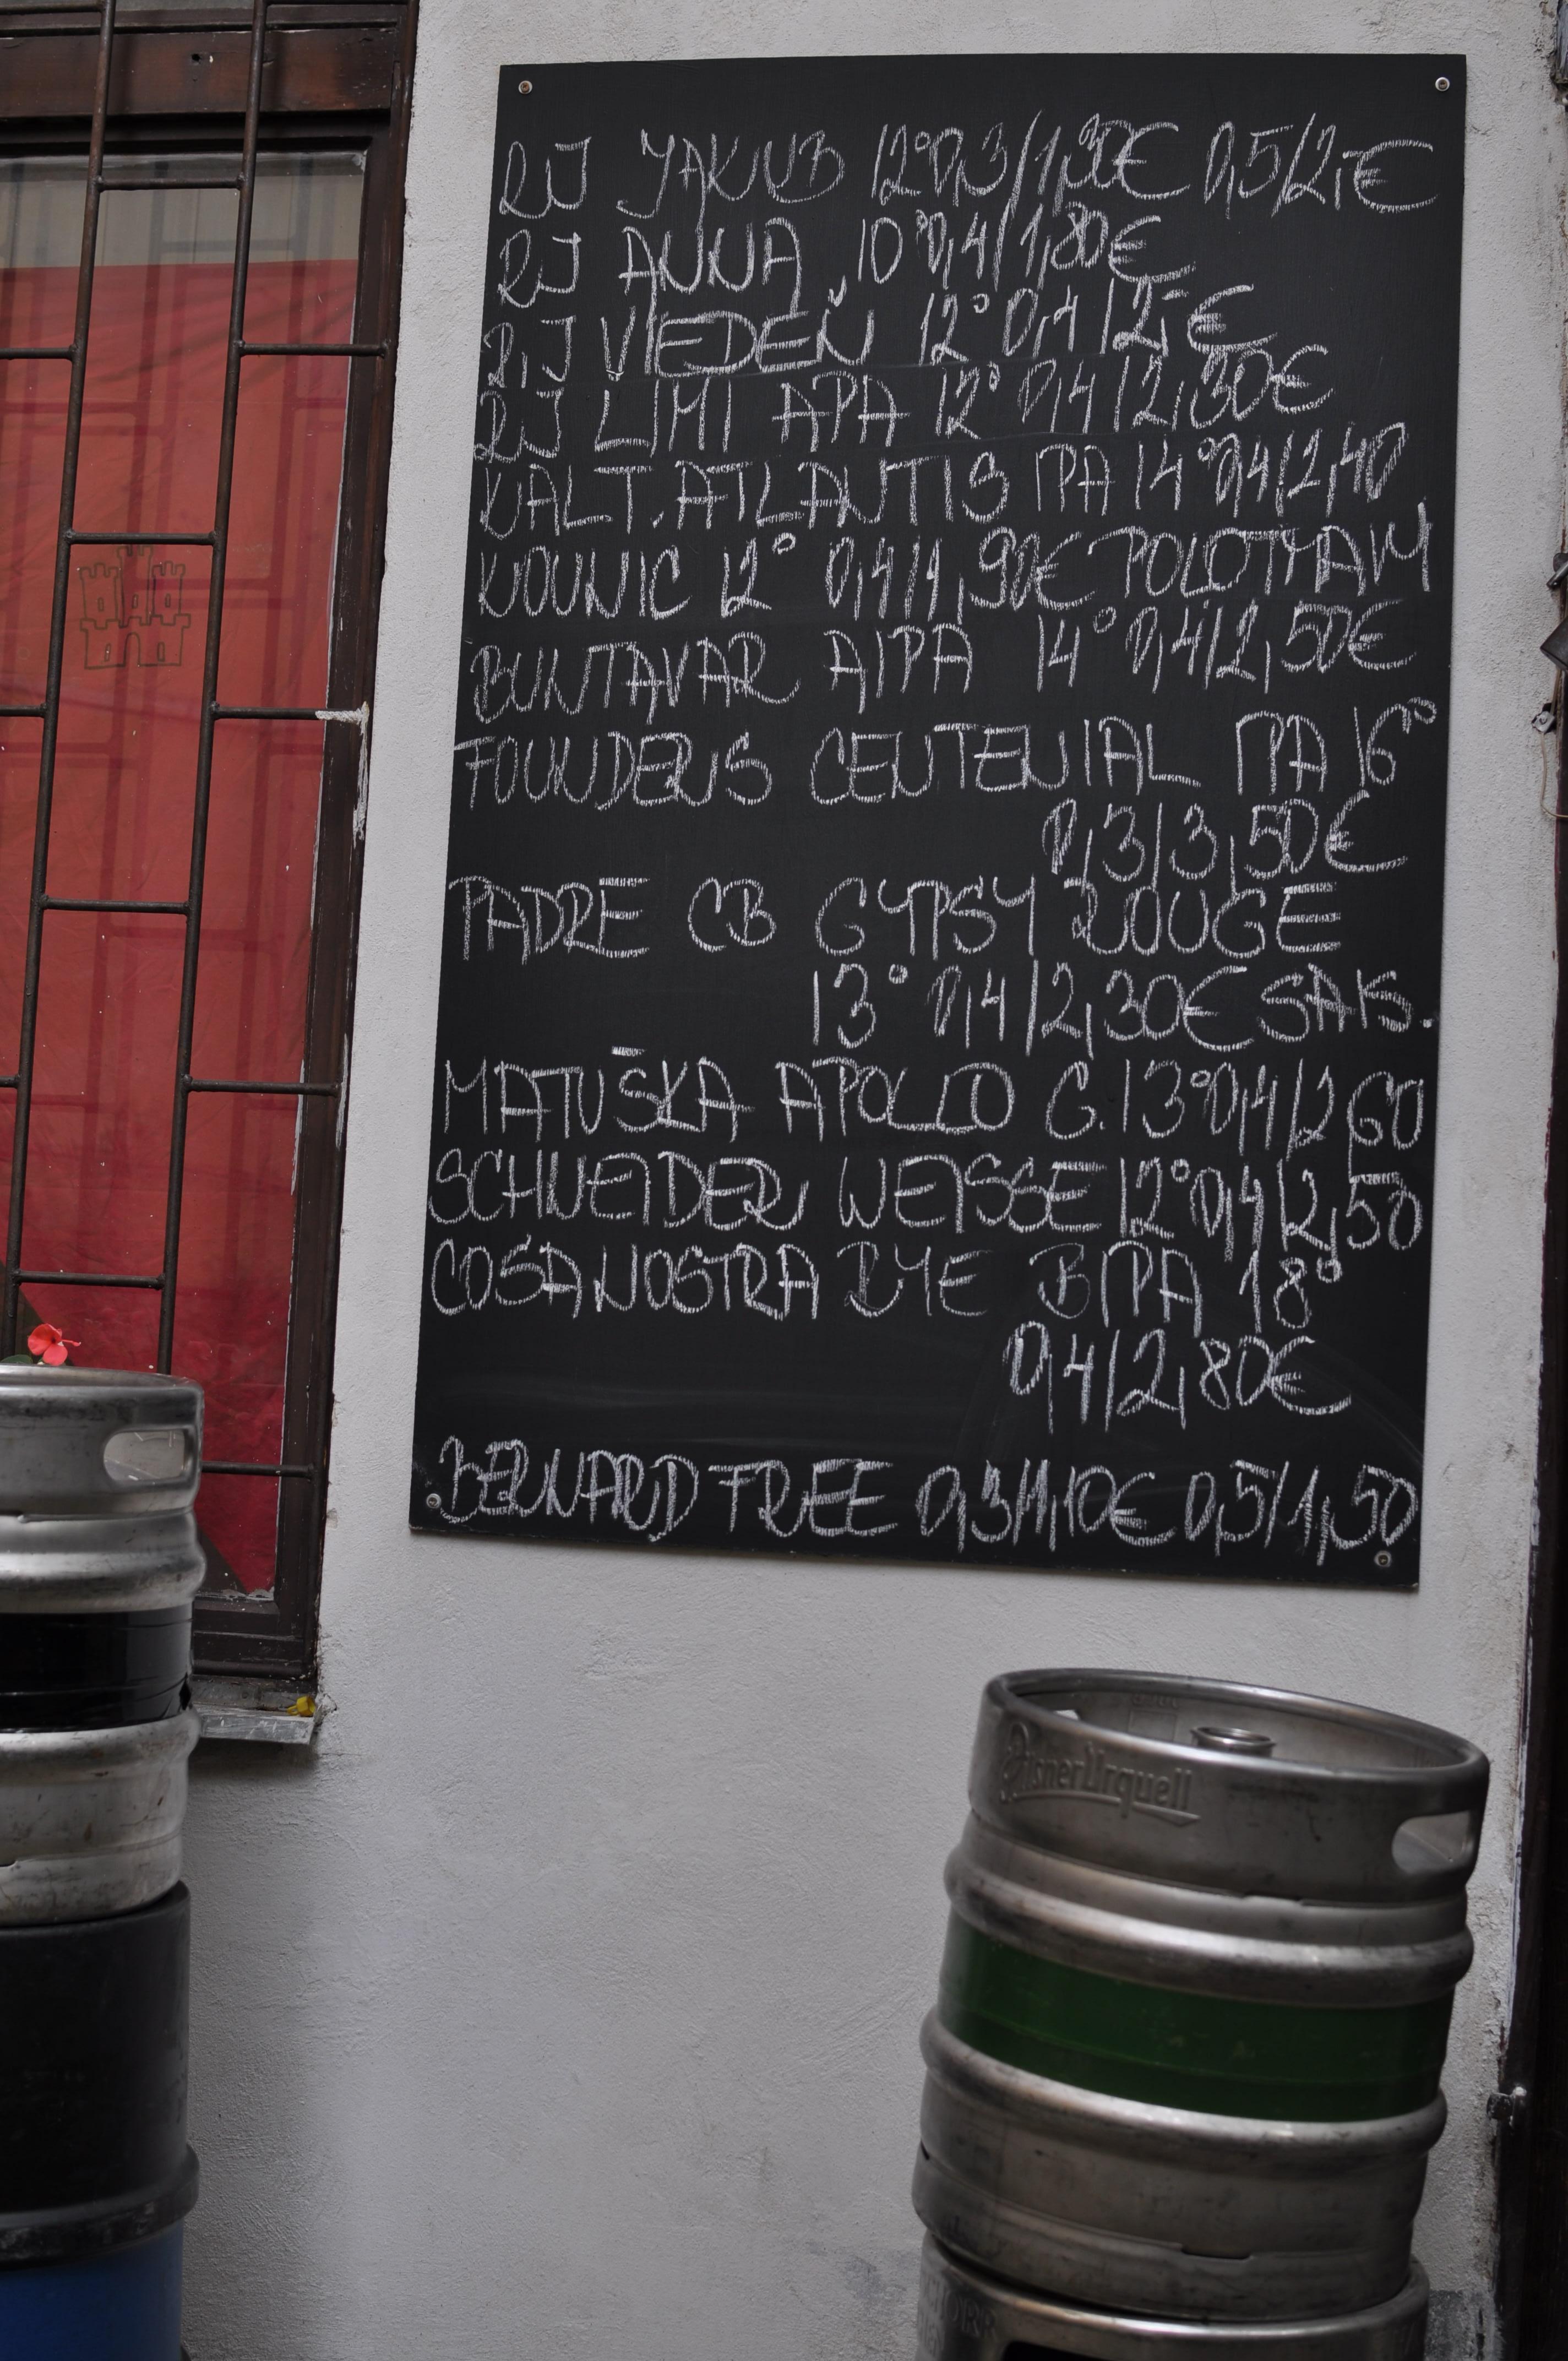 RJ JAKUB 12° 0,3/1,30€ 0,5/2,-€
RJ ANNA 10° 0,4/1,80€
R,J VIEDEŇ 12° 0,4/2,-€
RJ LIMI APA 12° 0,4/2,30€
KALT. ATLANTIS IPA 14° 0,4/2,40
KOUNIC 12° 0,4/1,90€ POLOTMAVÝ
BUNTAVAR AIPA 14° 0,4/2,50€
FOUNDERS CENTENIAL IPA 16°
0,3/3,50€
PADRE CB GYPSY ROUGE
13° 0,4/2,30€ SAIS.
MATUŠKA APOLLO G. 13° 0,4/2,60
SCHNEIDER WEISSE 12° 0,4/2,50
COSANOSTRA RYE BIPA 18°
0,4/2,80€
BERNARD FREE 0,3/1,10€ 0,5/1,50
Pilsner Urquell